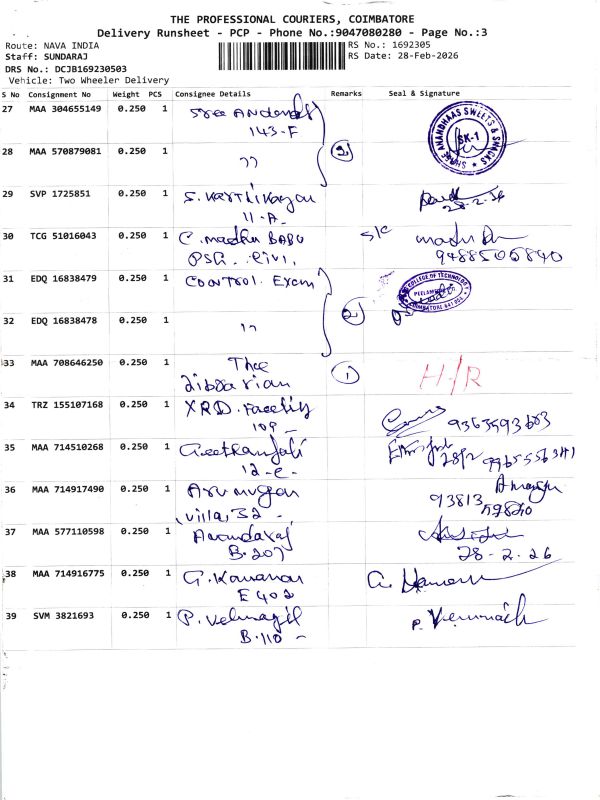 THE PROFESSIONAL COURIERS, COIMBATORE
Delivery Runsheet - PCP - Phone No.:9047080280 - Page No.:3
Route: NAVA INDIA
Staff: SUNDARAJ
DRS No.: DCJB169230503
Vehicle: Two Wheeler Delivery
RS No.: 1692305
RS Date: 28-Feb-2026
S No Consignment No Weight PCS Consignee Details Remarks Seal & Signature
27 MAA 304655149 0.250 1 Sree Anandhas
143-F
SHREE ANANDHAAS SWEETS & SNACKS
SK-1
28 MAA 570879081 0.250 1 " 2
29 SVP 1725851 0.250 1 S. Karthikayan
11-A
28-2-26
30 TCG 51016043 0.250 1 C. madhu BABU S/C
PSG. Civi.
9488506840
31 EDQ 16838479 0.250 1 Control. Exam
COLLEGE OF TECHNOLOGY
PEELAMEDU
COIMBATORE 641 004
32 EDQ 16838478 0.250 1 " 2
33 MAA 708646250 0.250 1 The 1 H/R
librarian
34 TRZ 155107168 0.250 1 XRD. Facility
109 -
9363593603
35 MAA 714510268 0.250 1 Geethanjali
12-e-
28/2
36 MAA 714917490 0.250 1 Arumugam
villa, 32 -
93813
59840
37 MAA 577110598 0.250 1 Anandaraj
B-207
28-2-26
38 MAA 714916775 0.250 1 G. Kannan
E 402
39 SVM 3821693 0.250 1 P. Velmayil
B-110 -